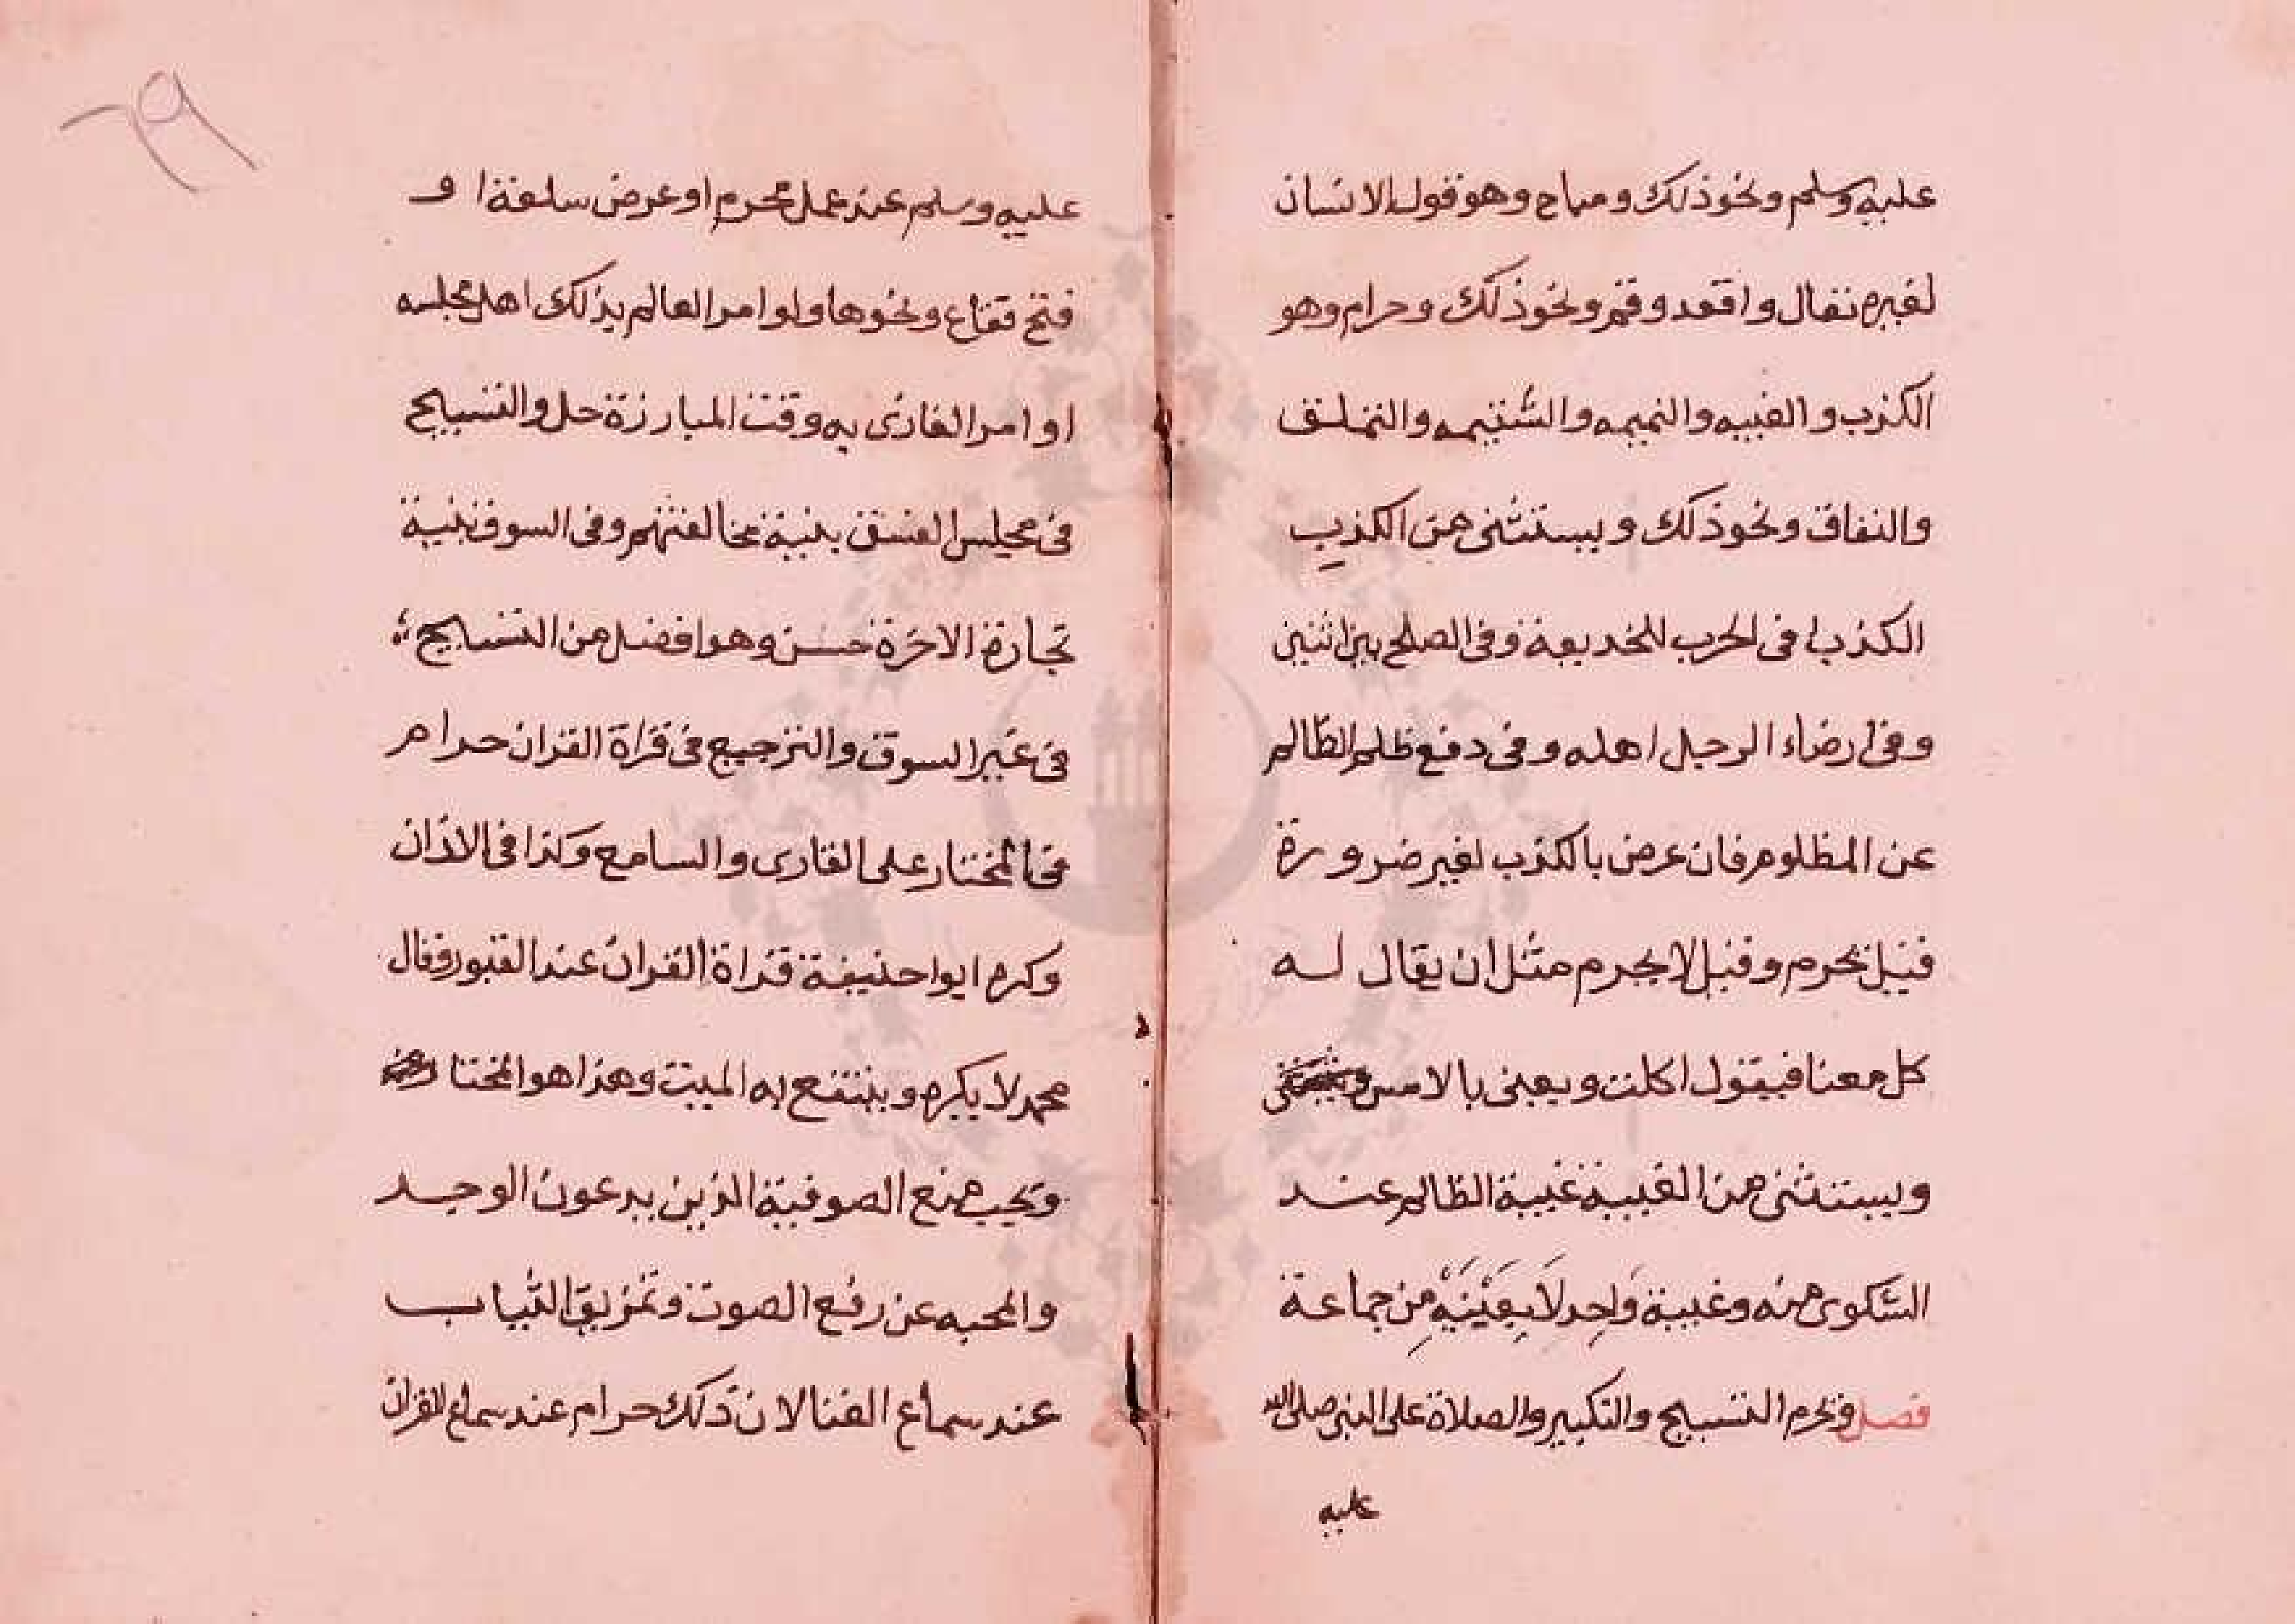 عليه وسلم ونحو ذلك ومباح وهو قول الانسان
لغيره تعال واقعد وقم ونحو ذلك وحرام وهو
الكذب والغيبه والنميمه والشتيمه والتملق
والنفاق ونحو ذلك ويستثنى من الكذب
الكذب في الحرب للخديعة وفي الصلح بين اثنين
وفي ارضاء الرجل اهله وفي دفع ظلم الظالم
عن المظلوم فان عرض بالكذب لغير ضرورة
قيل يحرم وقيل لا يحرم مثل ان يقال له
كل معنا فيقول اكلت ويعني بالامس
ويستثنى من الغيبة غيبة الظالم عند
الشكوى منه وغيبة وَاحِد لَا بِعَيْنِهِ مِن جماعة
فصل ويحرم التسبيح والتكبير والصلاة على النبي صلى الله
عليه
٦٩
عليه وسلم عند عمل محرم او عرض سلعة او
فتح فقاع ونحوها ولو امر العالم بذلك اهل مجلسه
او امر الغازى به وقت المبارزة حل والتسبيح
في مجلس الفسق بنية مخالفتهم وفي السوق بنية
تجارة الاخرة حسن وهو افضل من التسبيح
في غير السوق والترجيع في قراة القران حرام
في المختار على القارى والسامع وكذا في الاذان
وكره ابوا حنيفة قراة القران عند القبور وقال
محمد لا يكره وينتفع به الميت وهذا هو المختار
ويجب منع الصوفية الذين يدعون الوجد
والمحبه عن رفع الصوت وتمزيق الثياب
عند سماع الغنا لان ذلك حرام عند سماع القران